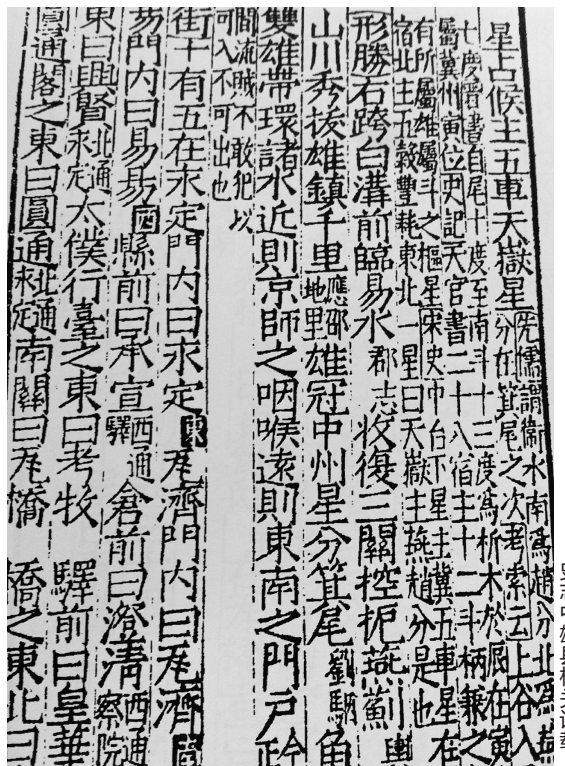 星占候主五車天嶽星先儒謂衛水南爲趙分北爲燕
分在箕尾之次考索云上谷入
七度晉書自尾十度至南斗十三度爲析木於辰在寅
屬冀州寅位史記天官書二十八宿主十二斗柄兼之
有所屬雄屬斗之樞星宋史中台下星主冀五車星在
宿北主五穀豐耗東北一星曰天嶽主燕趙分是也
形勝右跨白溝前臨易水郡志收復三關控扼燕薊輿
山川秀拔雄鎮千里應劭地里雄冠中州星分箕尾角
雙雄帶環諸水近則京師之咽喉遠則東南之門戶
間流賊不敢犯以
可入不可出也
街十有五在永定門内曰永定東瓦濟門内曰瓦濟
易門内曰易易西縣前曰承宣西通驛倉前曰澄淸西通察院
東曰興賢北通永定太僕行臺之東曰考牧驛前曰皇華
圓通閣之東曰圓通北通永定南關曰瓦橋橋之東北曰